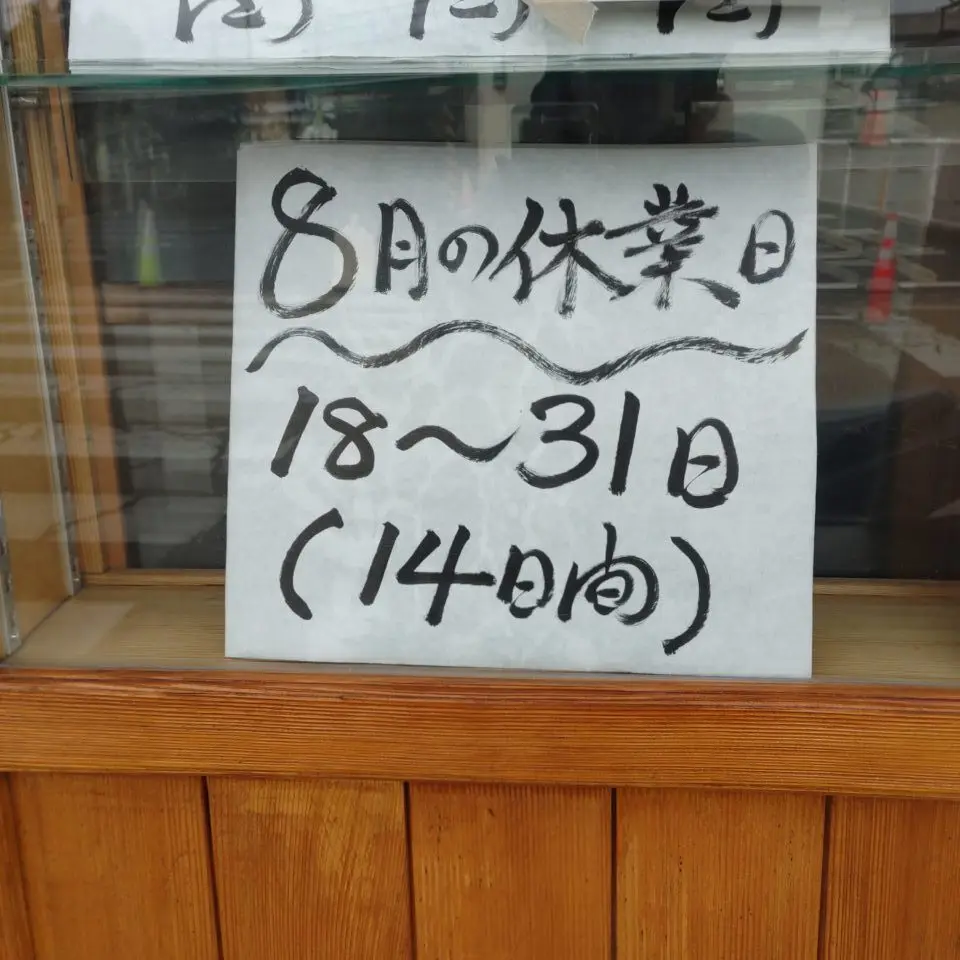 8月の休業日
18～31日
(14日間)